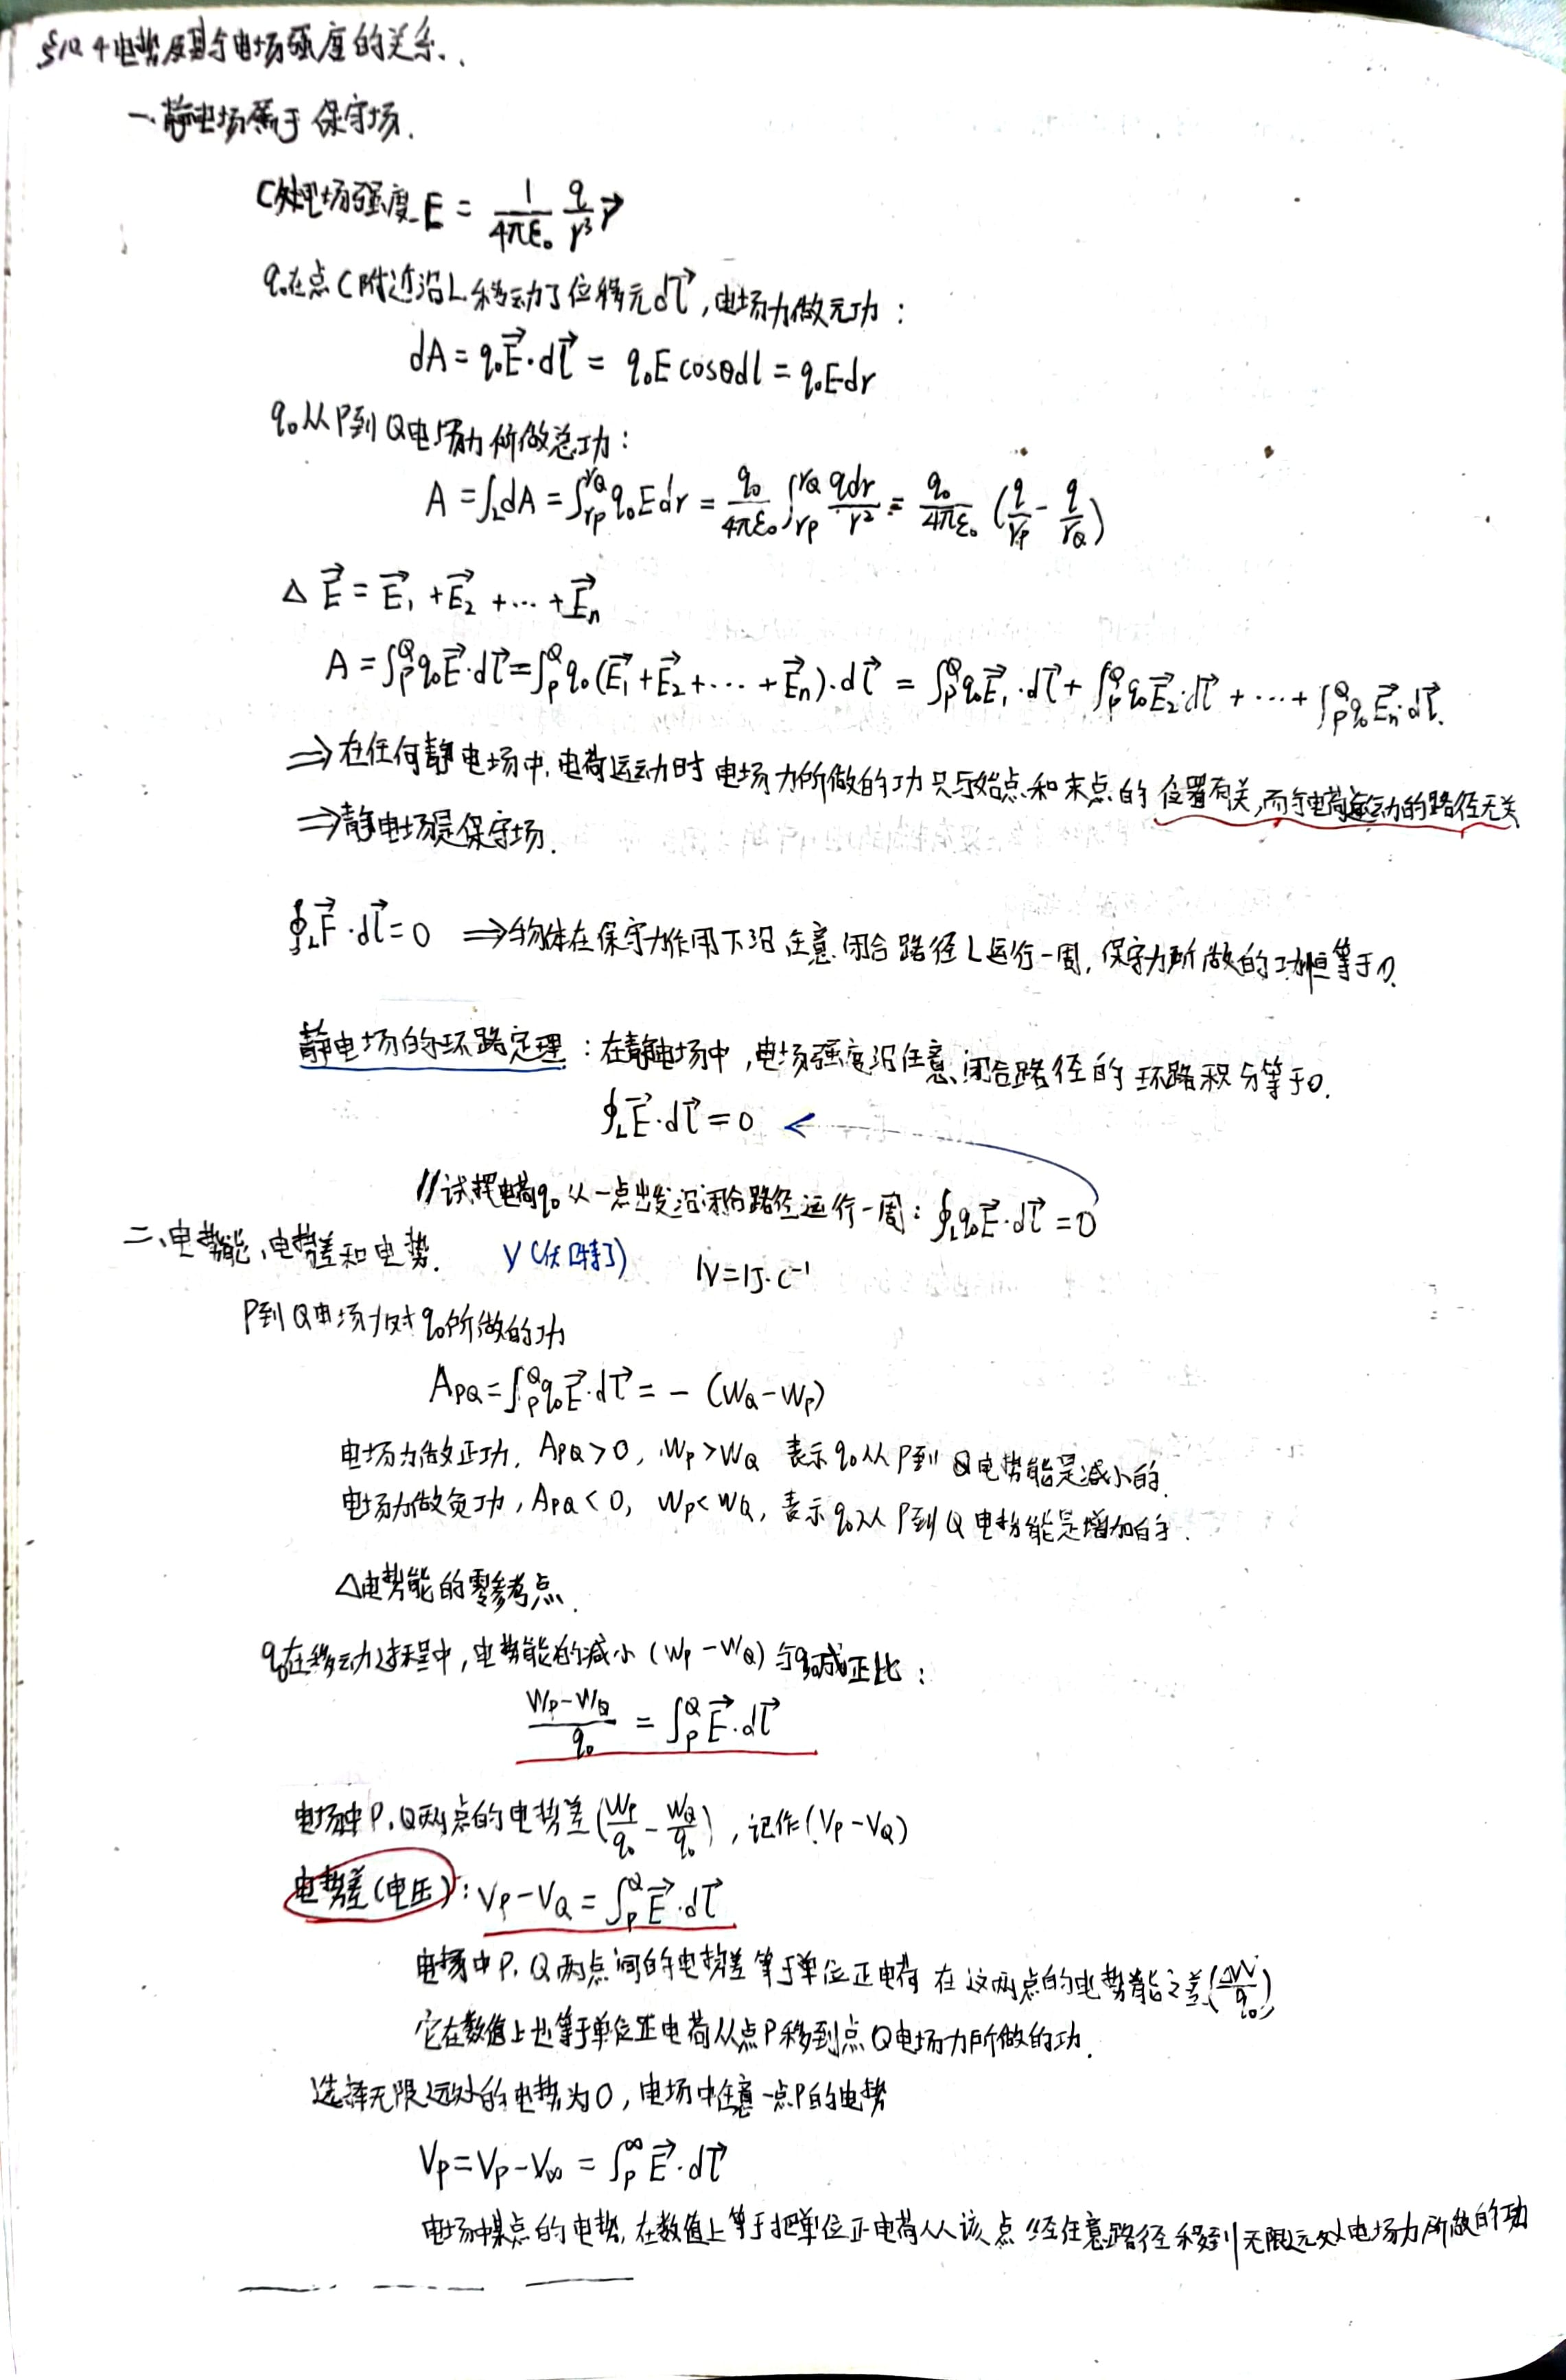 §10.4 电势及其与电场强度的关系.
一、静电场属于保守场.
C处电场强度 E = \frac{1}{4πε₀} \frac{q}{r³} \vec{r}
q₀在点C附近沿L移动了位移元d\vec{l}, 电场力做元功:
dA = q₀\vec{E}·d\vec{l} = q₀E cosθdl = q₀Edr
q₀从P到Q电场力所做总功:
A = ∫_L dA = ∫_{r_P}^{r_Q} q₀Edr = \frac{q₀}{4πε₀} ∫_{r_P}^{r_Q} \frac{qdr}{r²} = \frac{q₀}{4πε₀} (\frac{q}{r_P} - \frac{q}{r_Q})
△ \vec{E} = \vec{E}₁ + \vec{E}₂ + ··· + \vec{E}_n
A = ∫_P^Q q₀\vec{E}·d\vec{l} = ∫_P^Q q₀(\vec{E}₁ + \vec{E}₂ + ··· + \vec{E}_n)·d\vec{l} = ∫_P^Q q₀\vec{E}₁·d\vec{l} + ∫_P^Q q₀\vec{E}₂·d\vec{l} + ··· + ∫_P^Q q₀\vec{E}_n·d\vec{l}.
⇒在任何静电场中, 电荷运动时电场力所做的功只与始点和末点的位置有关, 而与电荷运动的路径无关
⇒静电场是保守场.
∮_L \vec{F}·d\vec{l} = 0 ⇒物体在保守力作用下沿任意闭合路径L运行一周, 保守力所做的功恒等于0.
静电场的环路定理: 在静电场中, 电场强度沿任意闭合路径的环路积分等于0.
∮_L \vec{E}·d\vec{l} = 0 ←
//试探电荷q₀从一点出发沿闭合路径运行一周: ∮_L q₀\vec{E}·d\vec{l} = 0
二、电势能、电势差和电势. V(伏特) 1V=1J·C⁻¹
P到Q电场力对q₀所做的功
A_{PQ} = ∫_P^Q q₀\vec{E}·d\vec{l} = - (W_Q - W_P)
电场力做正功, A_{PQ} > 0, W_P > W_Q 表示q₀从P到Q电势能是减小的.
电场力做负功, A_{PQ} < 0, W_P < W_Q, 表示q₀从P到Q电势能是增加的.
△电势能的零参考点.
q₀在移动过程中, 电势能的减小 (W_P - W_Q) 与q₀成正比:
\frac{W_P - W_Q}{q₀} = ∫_P^Q \vec{E}·d\vec{l}
电场中P、Q两点的电势差(\frac{W_P}{q₀} - \frac{W_Q}{q₀}), 记作(V_P - V_Q)
电势差(电压): V_P - V_Q = ∫_P^Q \vec{E}·d\vec{l}
电场中P、Q两点间的电势差等于单位正电荷在这两点的电势能之差(\frac{ΔW}{q₀})
它在数值上也等于单位正电荷从点P移到点Q电场力所做的功.
选择无限远处的电势为0, 电场中任意一点P的电势
V_P = V_P - V_∞ = ∫_P^∞ \vec{E}·d\vec{l}
电场中某点的电势, 在数值上等于把单位正电荷从该点经任意路径移到无限远处电场力所做的功